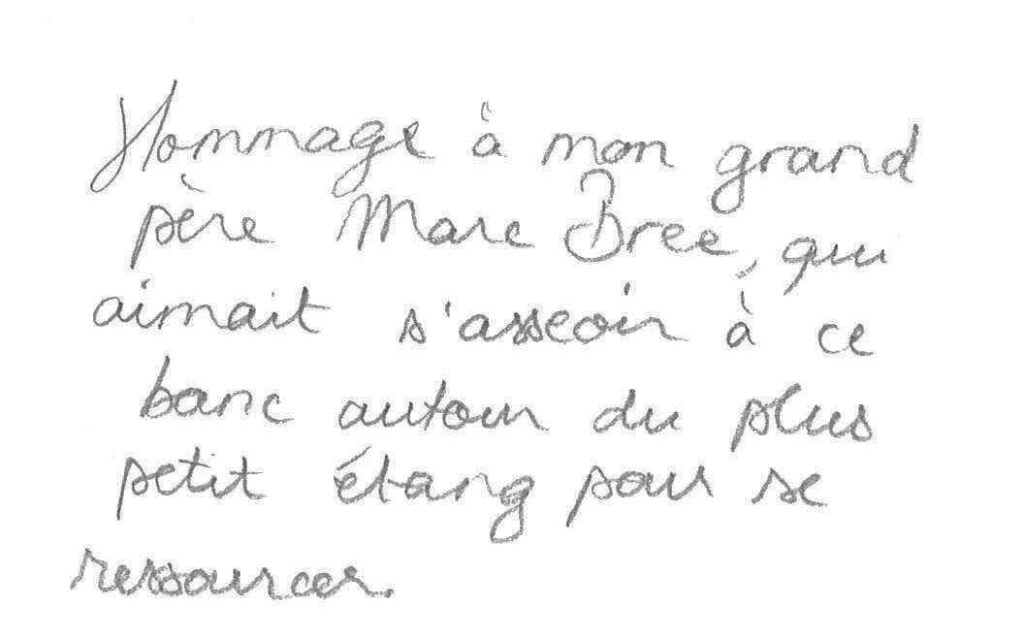 Hommage à mon grand
père Marc Bree, qui
aimait s'asseoir à ce
banc autour du plus
petit étang pour se
ressourcer.